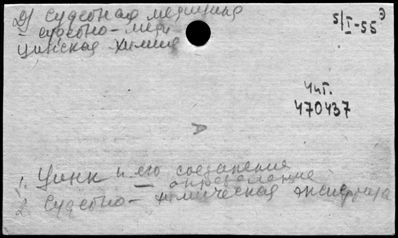 2) Судебная медицина
5/I-55э
- судебно-меди
цинская химия
Чит.
470437
1. Цинк и его соединения
– определение
2. Судебно-химическая экспертиза